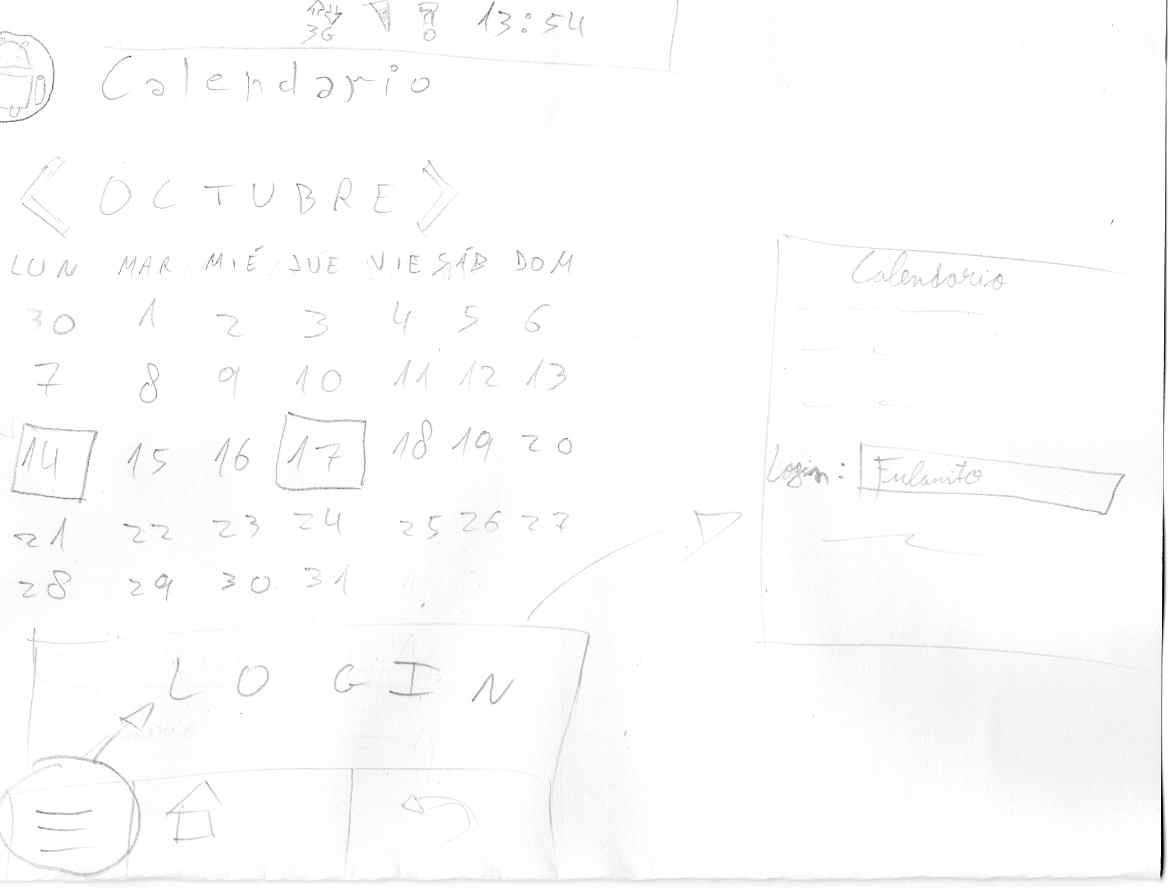 3G 13:54
Calendario
OCTUBRE
LUN MAR MIÉ JUE VIE SÁB DOM
30 1 2 3 4 5 6
7 8 9 10 11 12 13
14 15 16 17 18 19 20
21 22 23 24 25 26 27
28 29 30 31
LOGIN
Calendario
Login: Fulanito